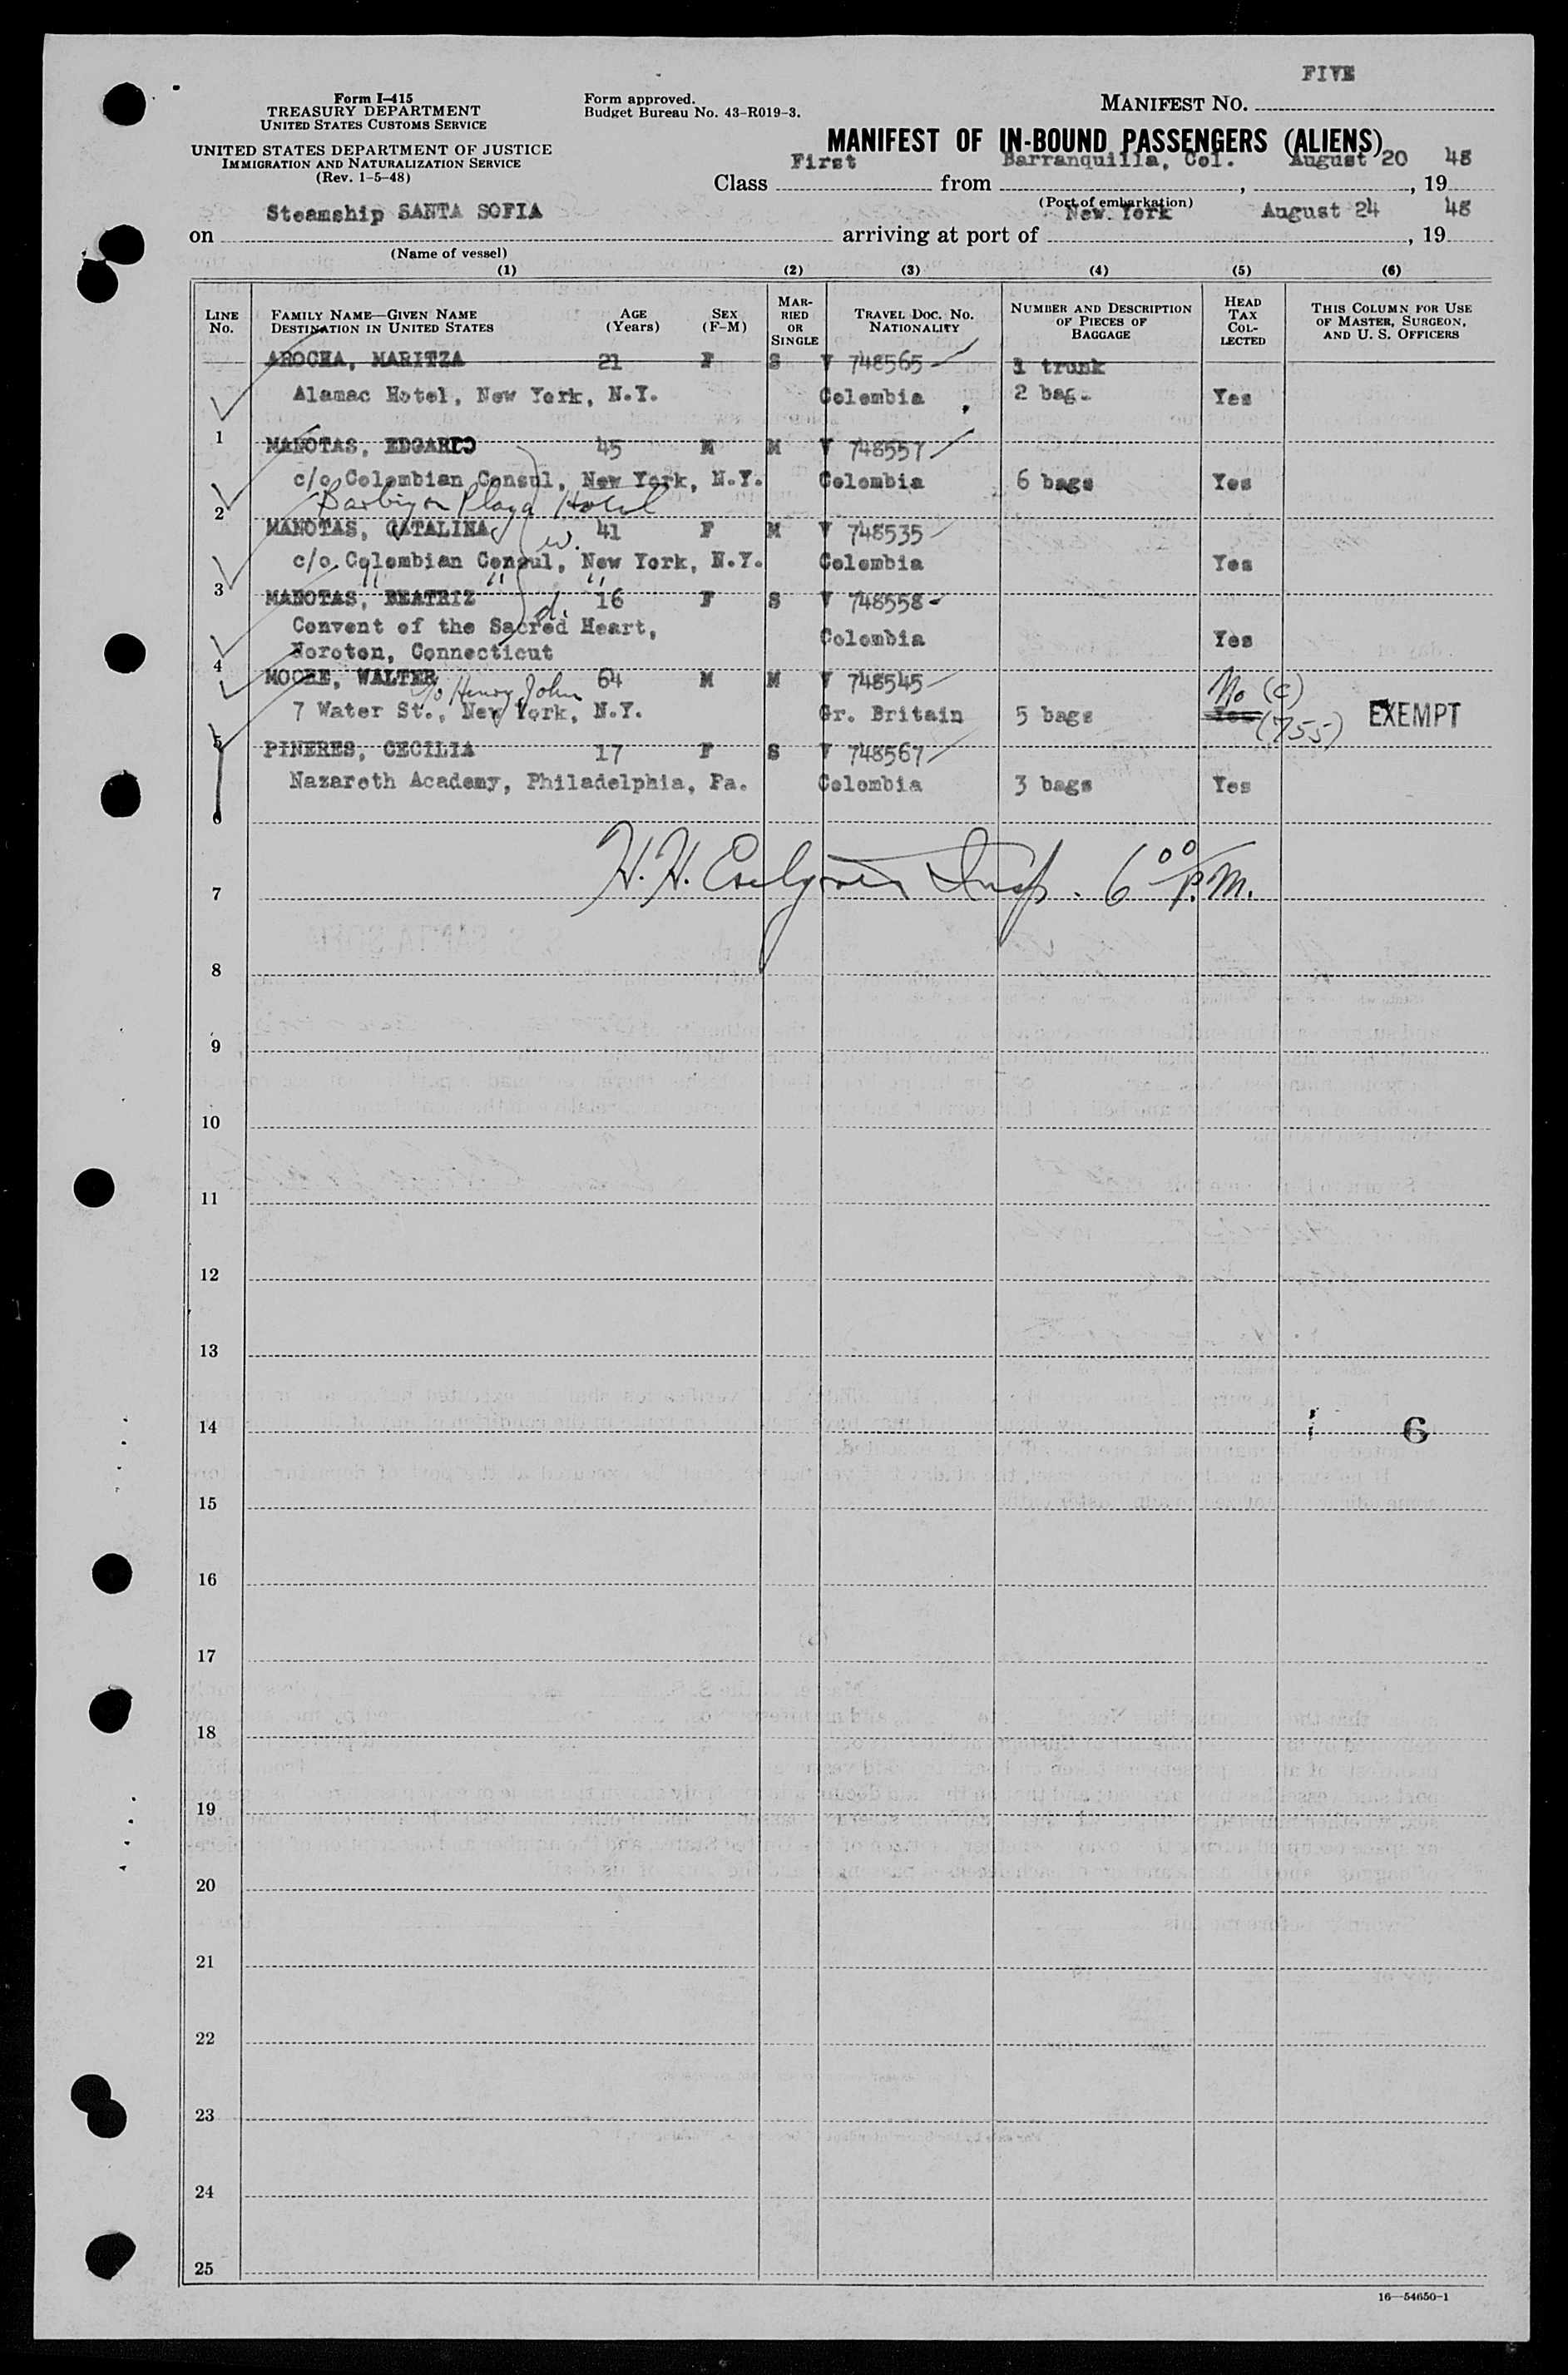 FIVE
Form I-415
TREASURY DEPARTMENT
UNITED STATES CUSTOMS SERVICE
UNITED STATES DEPARTMENT OF JUSTICE
IMMIGRATION AND NATURALIZATION SERVICE
(Rev. 1-5-48)
Form approved.
Budget Bureau No. 43-R019-3.
MANIFEST NO.
MANIFEST OF IN-BOUND PASSENGERS (ALIENS)
Class First from Barranquilla, Col., August 20, 19 48
(Port of embarkation)
on Steamship SANTA SOFIA arriving at port of New York August 24, 19 48
(Name of vessel)
(1) (2) (3) (4) (5) (6)
LINE NO. FAMILY NAME—GIVEN NAME DESTINATION IN UNITED STATES AGE (Years) SEX (F-M) MARRIED OR SINGLE TRAVEL DOC. NO. NATIONALITY NUMBER AND DESCRIPTION OF PIECES OF BAGGAGE HEAD TAX COLLECTED THIS COLUMN FOR USE OF MASTER, SURGEON, AND U. S. OFFICERS
AROCHA, MARITZA 21 F S V 748565 1 trunk
Alamac Hotel, New York, N.Y. Colombia 2 bag. Yes
1
MANOTAS, EDGARDO 45 M M V 748557
c/o Colombian Consul, New York, N.Y. Colombia 6 bags Yes
2 Barbizon Plaza Hotel
MANOTAS, CATALINA w. 41 F M V 748535
c/o Colombian Consul, New York, N.Y. Colombia Yes
3 " " "
MANOTAS, BEATRIZ d. 16 F S V 748558
Convent of the Sacred Heart, Colombia Yes
4 Noroton, Connecticut
MOORE, WALTER 64 M M V 748545 No (C)
c/o Henry John
7 Water St., New York, N.Y. Gr. Britain 5 bags Yes (755) EXEMPT
5
PINERES, CECILIA 17 F S V 748567
Nazareth Academy, Philadelphia, Pa. Colombia 3 bags Yes
6
H. H. Insp. 6 00 P.M.
7
8
9
10
11
12
13
14 6
15
16
17
18
19
20
21
22
23
24
25
16—54650-1